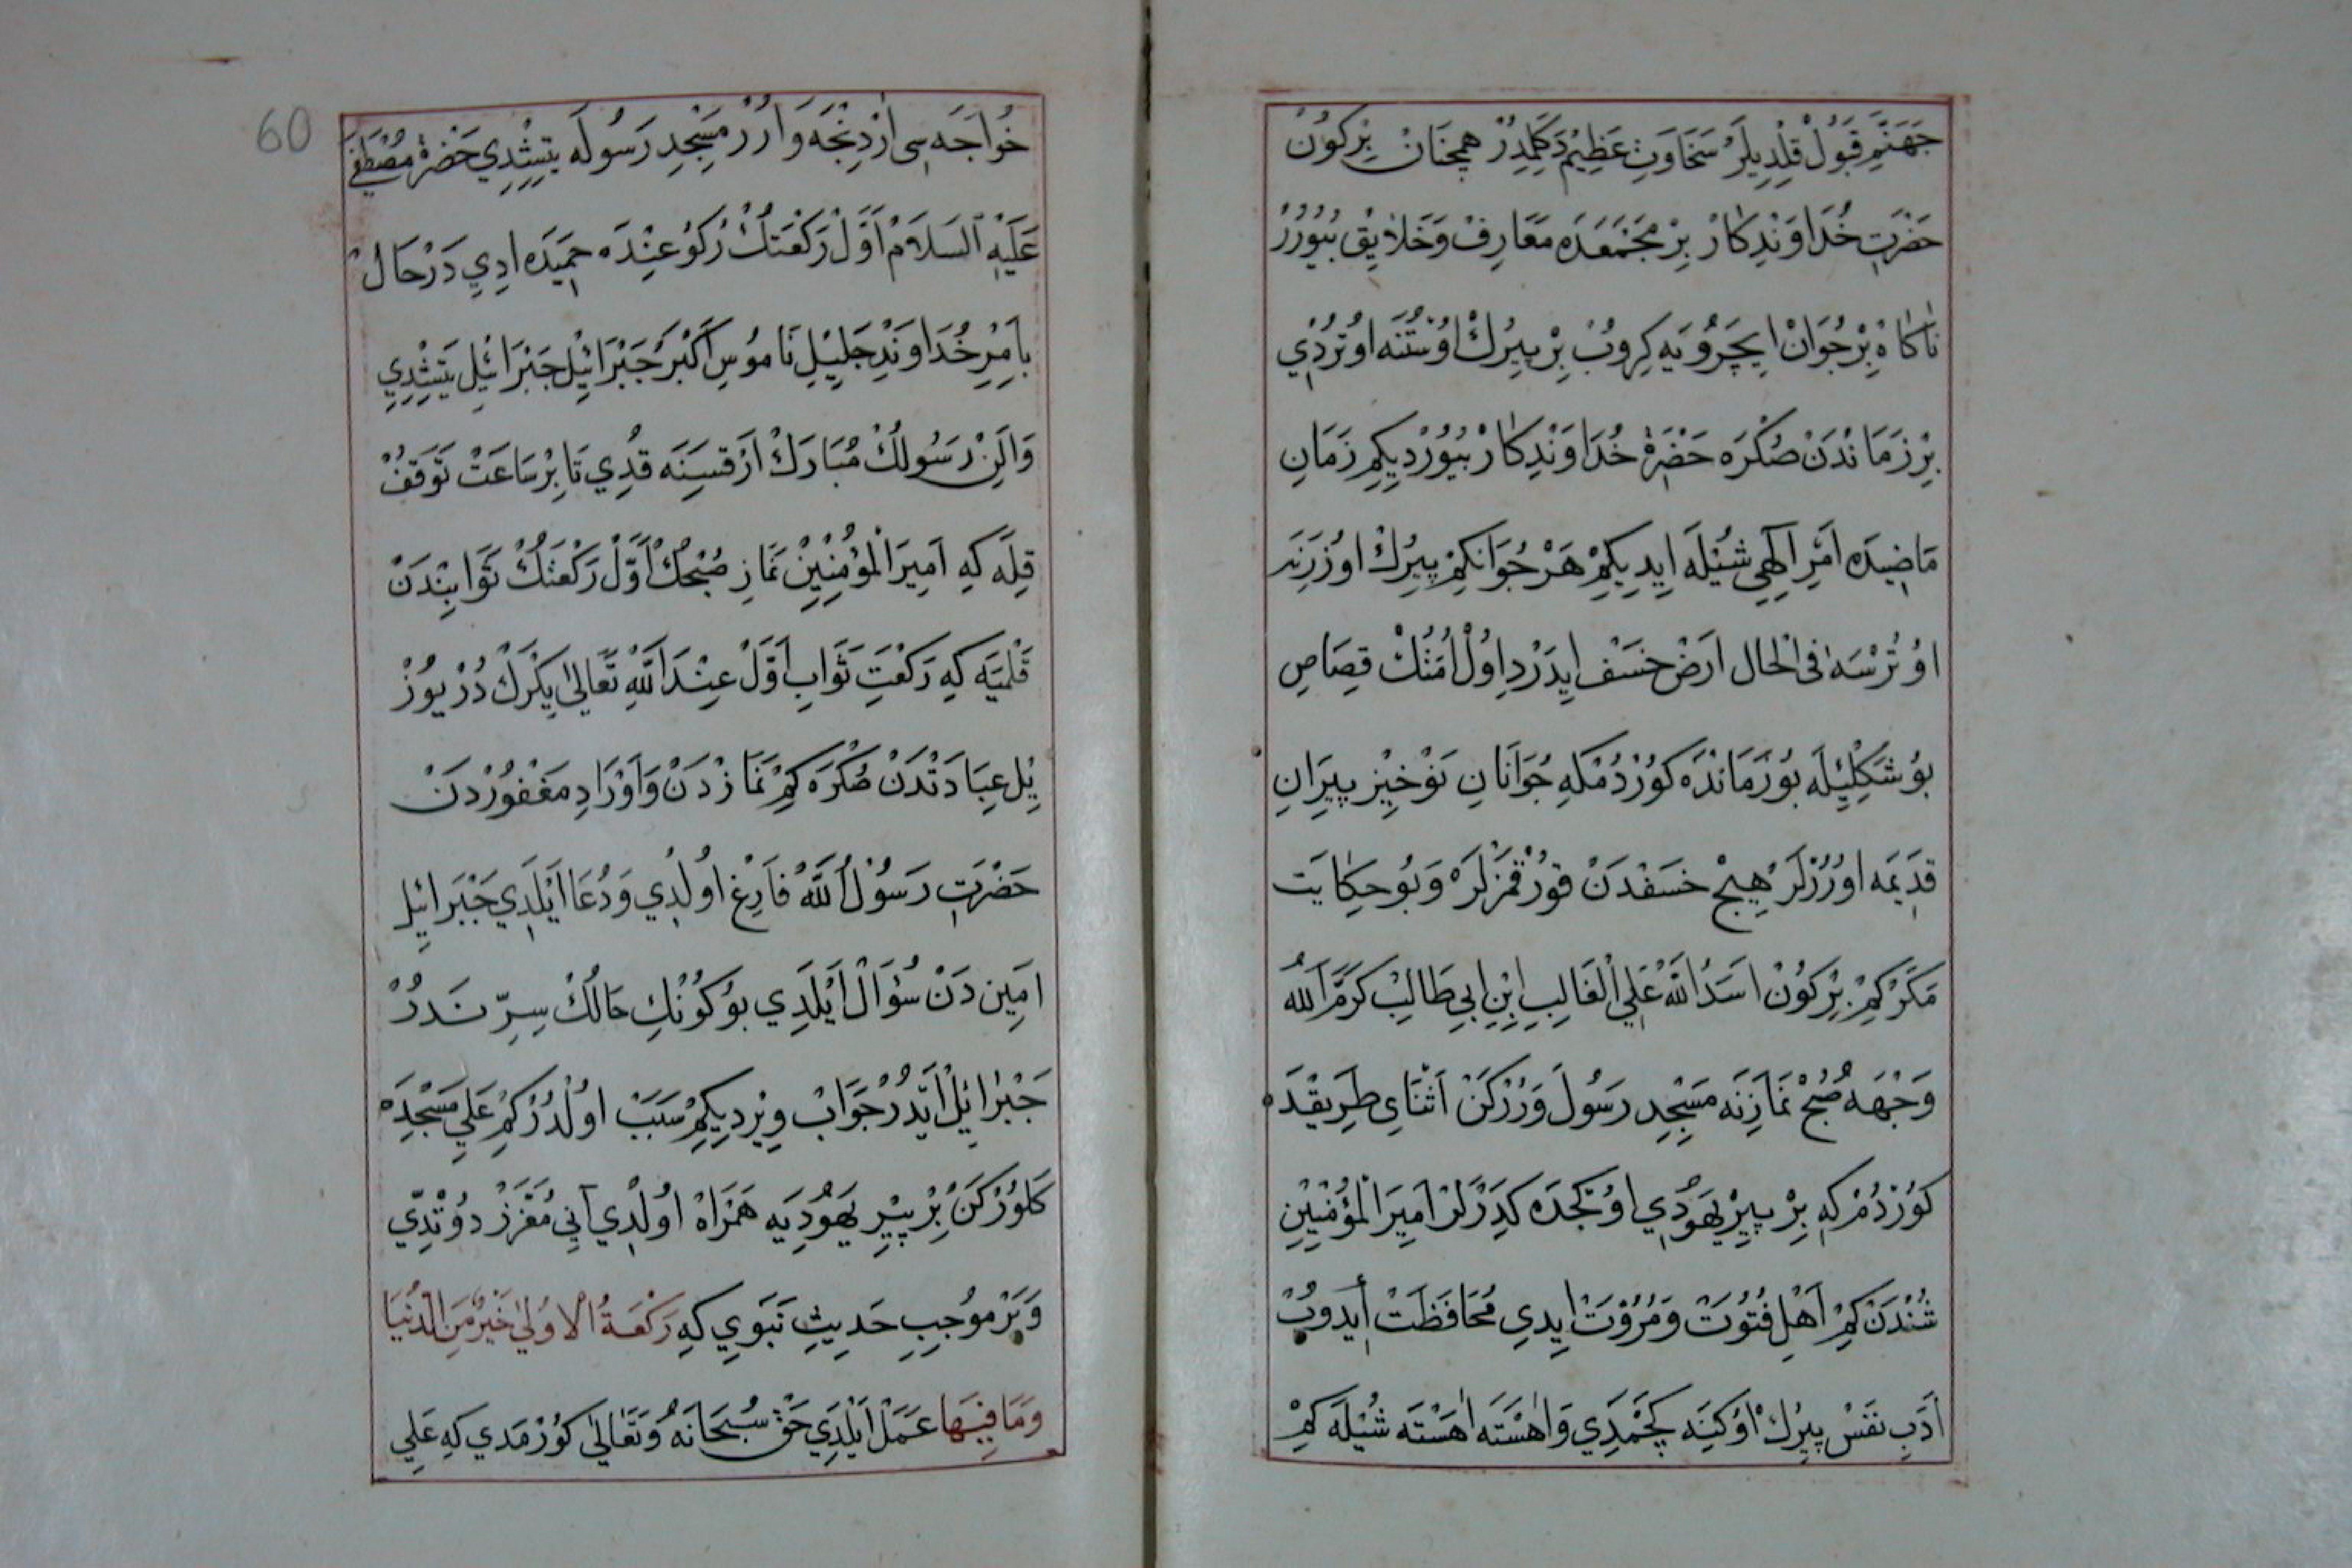 جَهَنَّمِ قَبُولْ قِلْدِيلَرْ سَخَاوَتِ عَظِيمْ دَكِلْمِدُرْ همچنَانْ بِرْكُونْ
حَضْرَتِ خُدَاوَنْدِكَارْ بِرْ مَجْمَعْدَه مَعَارِفْ وَخَلَايِقْ بُيُورُرْ
نَاكَاهْ بِرْ جُوَانْ اِيچَرُويَه كِرُوبْ بِرْ پِيرِكْ اُوسْتُنَه اُوتُرْدِي
بِرْ زَمَانْدَنْ صُكْرَه حَضْرَةْ خُدَاوَنْدِكَارْ بُيُورْدِيكِمْ زَمَانِ
مَاضِيدَه اَمْرِ اِلٰهِي شُيْلَه اِيدِيكِمْ هَرْ جُوَانكِمْ پِيرِكْ اُوزَرِنَه
اوُتُرْسَه فِى الْحَال اَرَضْ خَسَفْ اِيدَرْدِ اوُلْ اُمَتُكْ قِصَاصِ
بوُ شَكِلْيِلَه بُو زَمَانْدَه كُورْدُمْكِه جُوَانَانِ نَوْخِيزْ پِيرَانِ
قَدِيمَه اوُرُرْلَرْ هِيچْ خَسَفْدَنْ قُورْقْمَزْلَرْ وَبُو حِكَايَتْ
مَكَرْكِمْ بِرْكُونْ اَسَدُ اللّٰهْ عَلِي الْغَالِبِ اِبْنِ اَبِي طَالِبْ كَرَّمَ اللّٰهُ
وَجْهَهُ صُبْحْ نَمَازِنَه مَسْجِدِ رَسُولَ وَرُرْكَنْ اَثْنَاىِ طَرِيقْدَه
كُورْدُمْ كِه بِرْ پِيرْ يَهُودِي اوُكُجَدَه كِدَرْ لَرْ اَمِيرَ الْمُؤْمِنِينْ
شُنْدَنْ كِمْ اَهْلِ فُتُوَّتْ وَمُرُوَّتْ اِيدِى مُحَافَظَتْ اِيدُوبْ
اَدَبِ نَفَسْ پِيرِكْ اوُكِنَه كَچْمَدِي وَاهَسْتَه اهَسْتَه شُيْلَه كِمْ
خُوَاجَه سِى اَرْدِنْجَه وَارُرْ مَسْجِدِ رَسُولَه يَتِشْدِي حَضْرَةْ مُصْطَفَى
عَلَيْهِ السَّلَامْ اَوَّلْ رَكْعَتِكْ رُكُوعِنْدَه خَمِيدَه ادِي دَرْحَالْ
بِاَمِرِ خُدَاوَنْدِ جَلِيلِ نَامُوسِ اَكْبَرْ جَبْرَائِيلْ جَبْرَائِلْ يَتِشْدِي
وَالَنْ رَسُولُكْ مُبَارَكْ اَرْقَسِنَه قُدِي تَا بِرْ سَاعَتْ تَوَقُّفْ
قِلَه كِه اَمِيرَ الْمُؤْمِنِينْ نَمَازِ صُبْحُكْ اَوَّلْ رَكْعَتُكْ ثَوَابِنْدَنْ
قَلْمَيَه كِه رَكْعَتِ ثَوَابِ اَوَّلْ عِنْدَ اللّٰهِ تَعَالٰى يِكْرَكْ دُرْ يُوزْ
يِلْ عِبَادَتْدَنْ صُكْرَه كِمْ نَمَازْدَنْ وَاَوْرَادِ مَغْفُورْدَنْ
حَضْرَتِ رَسُولُ اللّٰهْ فَارِغْ اوُلْدِي وَدُعَا اَيْلَدِي جَبْرَائِيلِ
اَمِيندَنْ سُؤَالْ اَيْلَدِي بُو كُونْكِ حَالُكْ سِرِّ نَدُرْ
جَبْرَائِلْ اَيْدُرْ جَوَابْ وِيرْدِيكِمْ سَبَبْ اوُلْدُرْ كِمْ عَلِي مَسْجِدَه
كَلُورْكَنْ بِرْ پِيرِ يَهُودِيَه هَمْرَاهْ اوُلْدِي آنِي مُعَزَّزْ دوُتْدِي
وَبَرْ مُوجِبِ حَدِيثِ نَبَوِي كِه رَكْعَةُ الْاُولٰى خَيْرٌ مِنَ الدُّنْيَا
وَمَا فِيهَا عَمَلْ اَيْلَدِي حَقْ سُبْحَانَهُ وَتَعَالٰى كُورْمَدِي كِه عَلِي
60